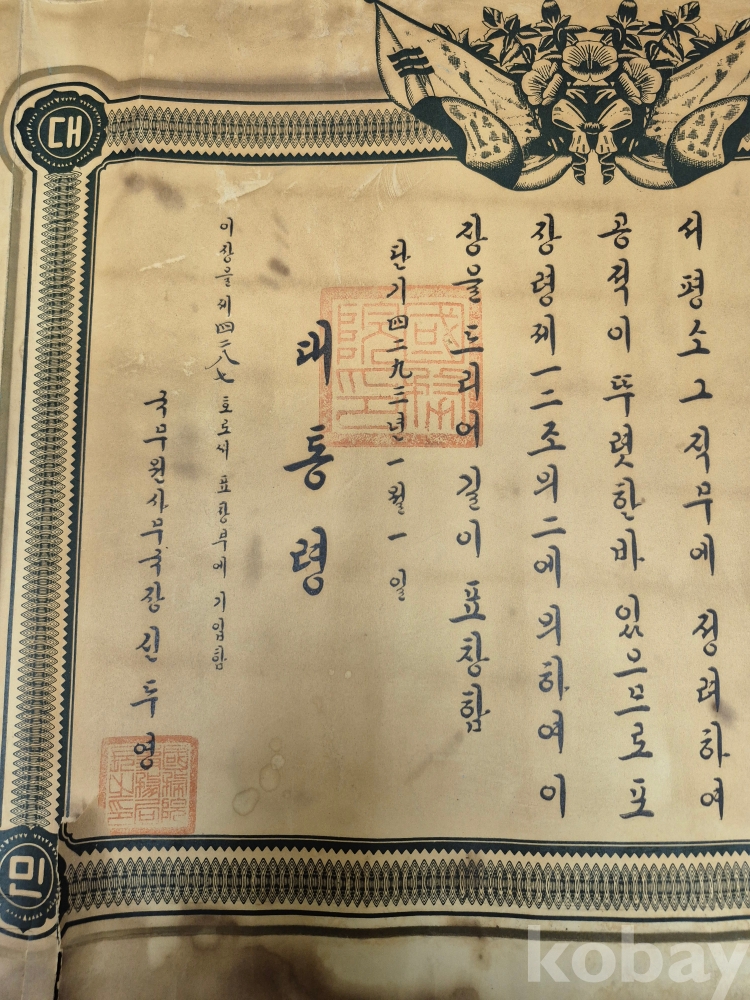 대
서 평소 그 직무에 정려하여
공적이 뚜렷한바 있으므로 포
장령제一二조의二에 의하여 이
장을 드리어 길이 표창함
단기四二九三년一월一일
대통령
이 장을 제四二八七호로서 표창부에 기입함
국무원사무국장 신두영
민
kobay